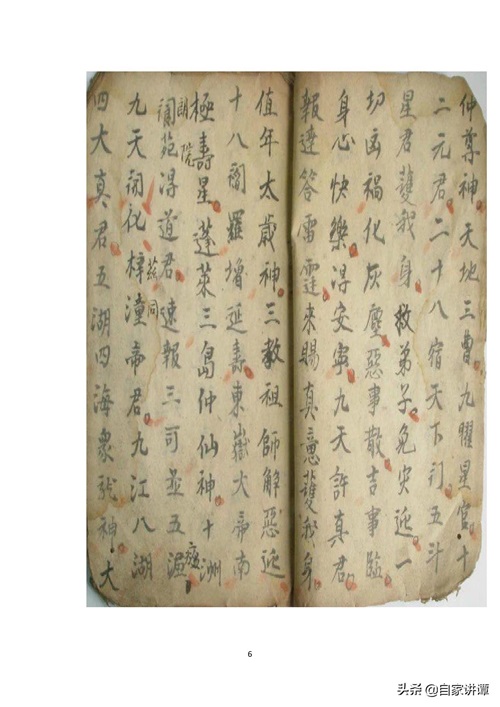 仲尊神。天地三曹。九曜星官。十
二元君。二十八宿天下到五斗
星君。護我身救弟子。免灾迍。一
切凶禍化灰塵惡事散吉事臨。
身心快樂。得安寧九天許真君。
報達答雷霆來賜真意護我身
值年太歲神。三教祖師解惡迍
十八閻羅增延壽東嶽大帝南
極壽星。蓬萊三島仲仙神十洲
閬苑得道君。速報三司並五瘟
朗院
九天開化梓潼帝君。九江八湖
茲同
四大真君五湖四海衆龍神大
6
头条 @自家讲谭